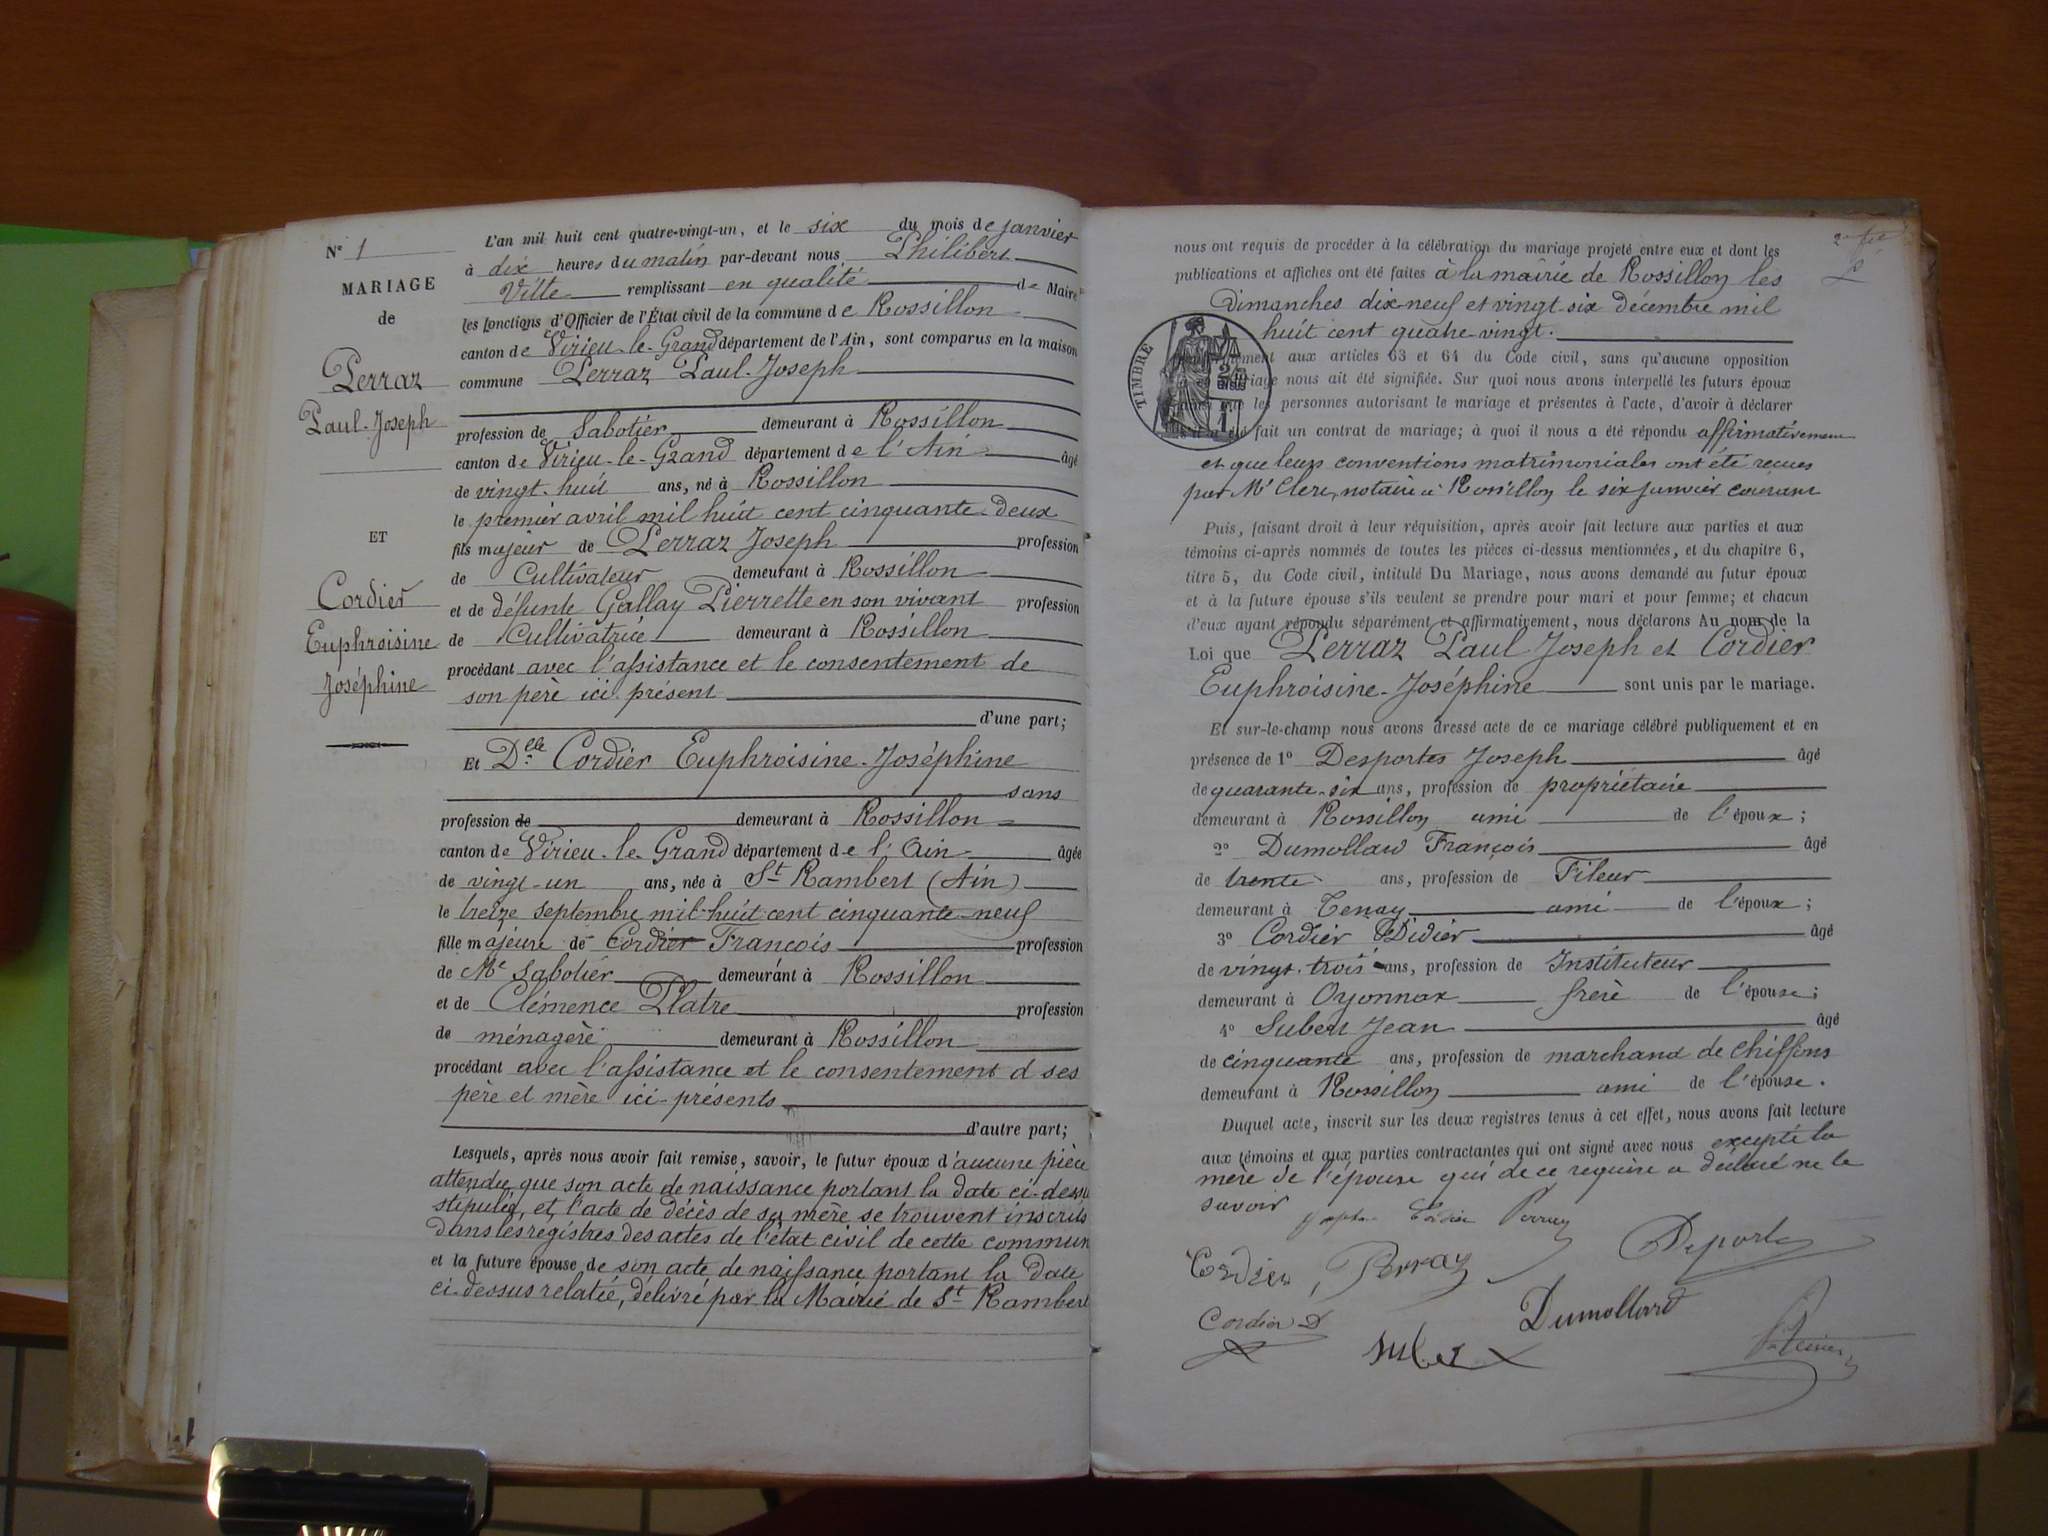 N° 1
MARIAGE
de
Perraz
Paul-Joseph
ET
Cordier
Euphroisine
Joséphine
L'an mil huit cent quatre-vingt-un, et le six du mois de janvier
à dix heures du matin par-devant nous Philibert
remplissant en qualité de Maire
les fonctions d'Officier de l'État civil de la commune de Rossillon
canton de Virieu-le-Grand département de l'Ain, sont comparus en la maison
commune Perraz Paul-Joseph
profession de Sabotier demeurant à Rossillon
canton de Virieu-le-Grand département de l'Ain âgé
de vingt-huit ans, né à Rossillon
le premier avril mil huit cent cinquante-deux
fils majeur de Perraz Joseph profession
de Cultivateur demeurant à Rossillon
et de défunte Gallay Pierrette en son vivant profession
de Cultivatrice demeurant à Rossillon
procédant avec l'assistance et le consentement de
son père ici présent
d'une part;
Et Dlle Cordier Euphroisine-Joséphine
sans
profession de demeurant à Rossillon
canton de Virieu-le-Grand département de l'Ain âgée
de vingt-un ans, née à St Rambert (Ain)
le treize septembre mil-huit cent cinquante-neuf
fille majeure de Cordier François profession
de Md Sabotier demeurant à Rossillon
et de Clémence Platre profession
de ménagère demeurant à Rossillon
procédant avec l'assistance et le consentement d ses
père et mère ici-présents
d'autre part;
Lesquels, après nous avoir fait remise, savoir, le futur époux d'aucune pièce
attendu que son acte de naissance portant la date ci-dessu
stipulée, et l'acte de décès de sa mère se trouvent inscrits
dans les registres des actes de l'état civil de cette commun
et la future épouse de son acte de naissance portant la date
ci-dessus relatée, délivré par la Mairie de St Rambert
nous ont requis de procéder à la célébration du mariage projeté entre eux et dont les
publications et affiches ont été faites à la mairie de Rossillon les
Dimanches dix-neuf et vingt-six décembre mil
huit cent quatre-vingt.
TIMBRE
aux articles 63 et 64 du Code civil, sans qu'aucune opposition
nous ait été signifiée. Sur quoi nous avons interpellé les futurs époux
les personnes autorisant le mariage et présentes à l'acte, d'avoir à déclarer
fait un contrat de mariage; à quoi il nous a été répondu affirmativement
et que leurs conventions matrimoniales ont été reçues
par Me Clerc, notaire à Rossillon le six janvier courant
Puis, faisant droit à leur réquisition, après avoir fait lecture aux parties et aux
témoins ci-après nommés de toutes les pièces ci-dessus mentionnées, et du chapitre 6,
titre 5, du Code civil, intitulé Du Mariage, nous avons demandé au futur époux
et à la future épouse s'ils veulent se prendre pour mari et pour femme; et chacun
d'eux ayant répondu séparément et affirmativement, nous déclarons Au nom de la
Loi que Perraz Paul Joseph et Cordier
Euphroisine-Joséphine sont unis par le mariage.
Et sur-le-champ nous avons dressé acte de ce mariage célébré publiquement et en
présence de 1° Desportes Joseph âgé
de quarante-six ans, profession de propriétaire
demeurant à Rossillon ami de l'époux;
2° Dumollard François âgé
de trente ans, profession de Fileur
demeurant à Tenay ami de l'époux;
3° Cordier Didier âgé
de vingt-trois ans, profession de Instituteur
demeurant à Oyonnax frère de l'épouse;
4° Subert Jean âgé
de cinquante ans, profession de marchand de chiffons
demeurant à Rossillon ami de l'épouse.
Duquel acte, inscrit sur les deux registres tenus à cet effet, nous avons fait lecture
aux témoins et aux parties contractantes qui ont signé avec nous excepté la
mère de l'épouse qui de ce requise a déclaré ne le
savoir
Cordier Perraz
Cordier D Dumollard